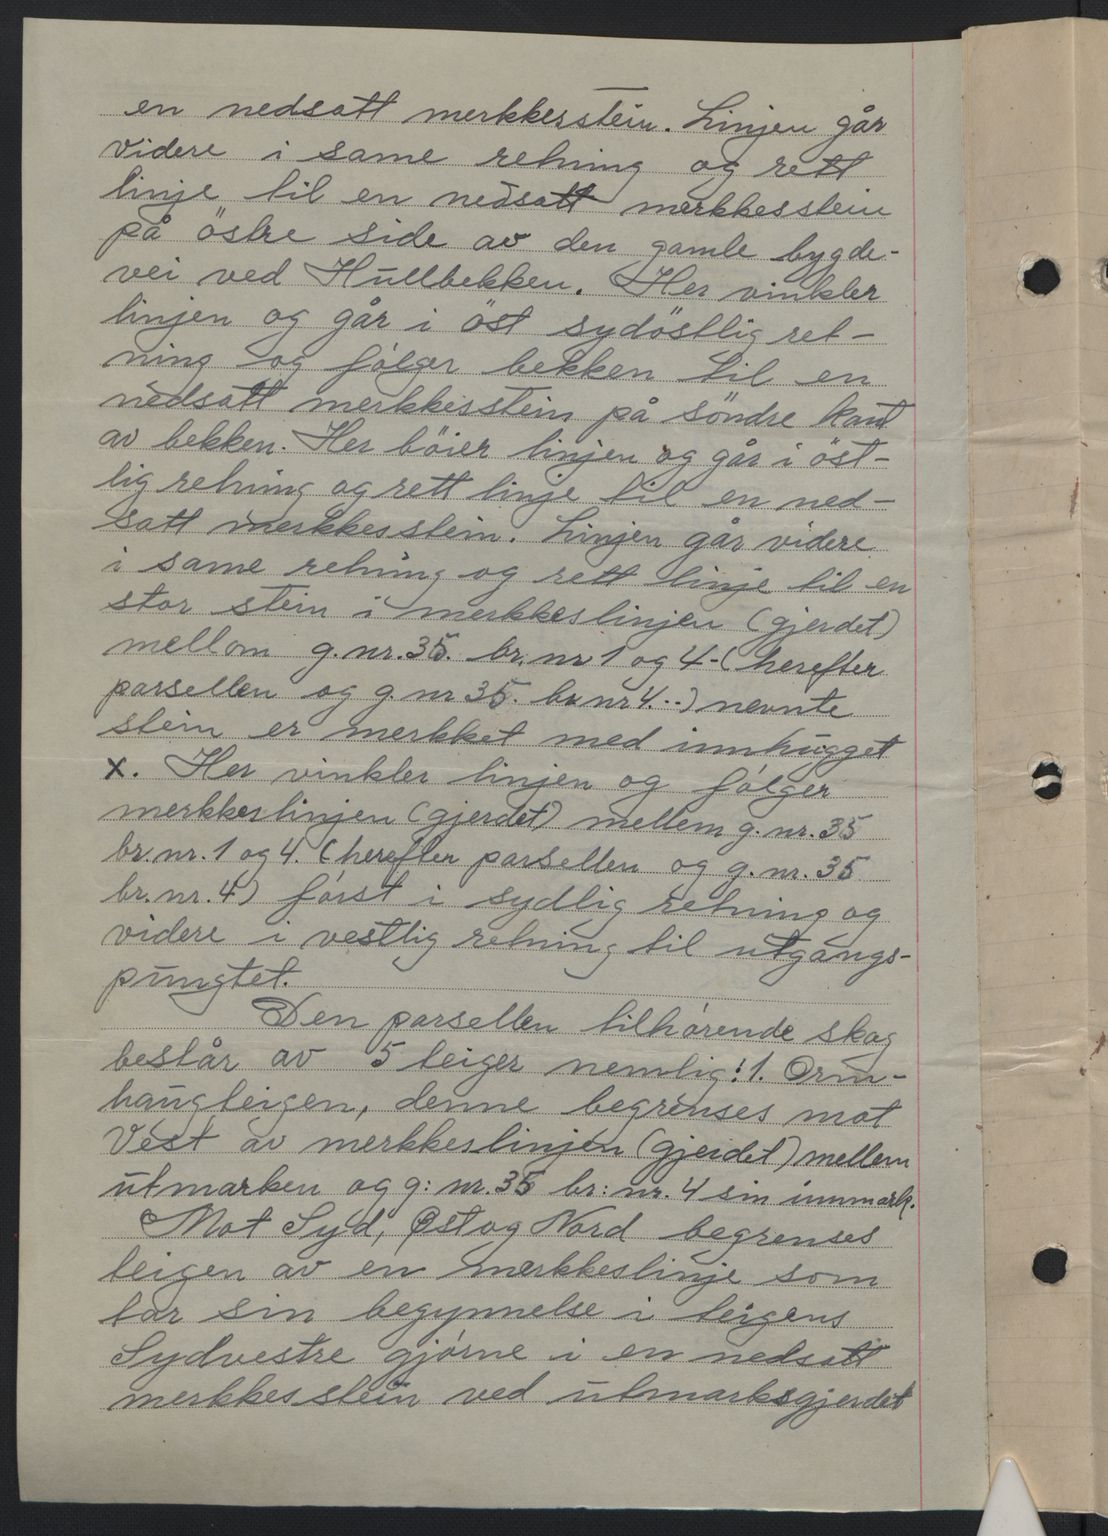 en nedsatt merkkesstein. Linjen går
videre i same retning og rett
linje til en nedsatt merkkesstein
på östre side av den gamle bygde-
vei ved Hullbekken. Her vinkler
linjen og går i öst sydöstlig ret-
ning og følger bekken til en
nedsatt merkkesstein på söndre kant
av bekken. Her böier linjen og går i öst-
lig retning og rett linje til en ned-
satt merkkesstein. Linjen går videre
i same retning og rett linje til en
stor stein i merkkeslinjen (gjerdet)
mellom g.nr. 35. br. nr 1 og 4-(herefter
parsellen og g. nr 35. br nr 4..) nevnte
stein er merkket med innhugget
x. Her vinkler linjen og følger
merkkeslinjen (gjerdet) mellem g. nr. 35
br. nr. 1 og 4. (herefter parsellen og g. nr. 35
br. nr. 4) først i sydlig retning og
videre i vestlig retning til utgangs-
pungtet.
Den parsellen tilhørende skog
består av 5 teiger nemlig: 1. Orm-
haugteigen, denne begrenses mot
Vest av merkkeslinjen (gjerdet) mellem
utmarken og g: nr. 35 br: nr. 4 sin innmark.
Mot Syd, Øst og Nord begrenses
teigen av en merkkeslinje som
tar sin begynnelse i teigens
Sydvestre gjørne i en nedsatt
merkkesstein ved utmarksgjerdet